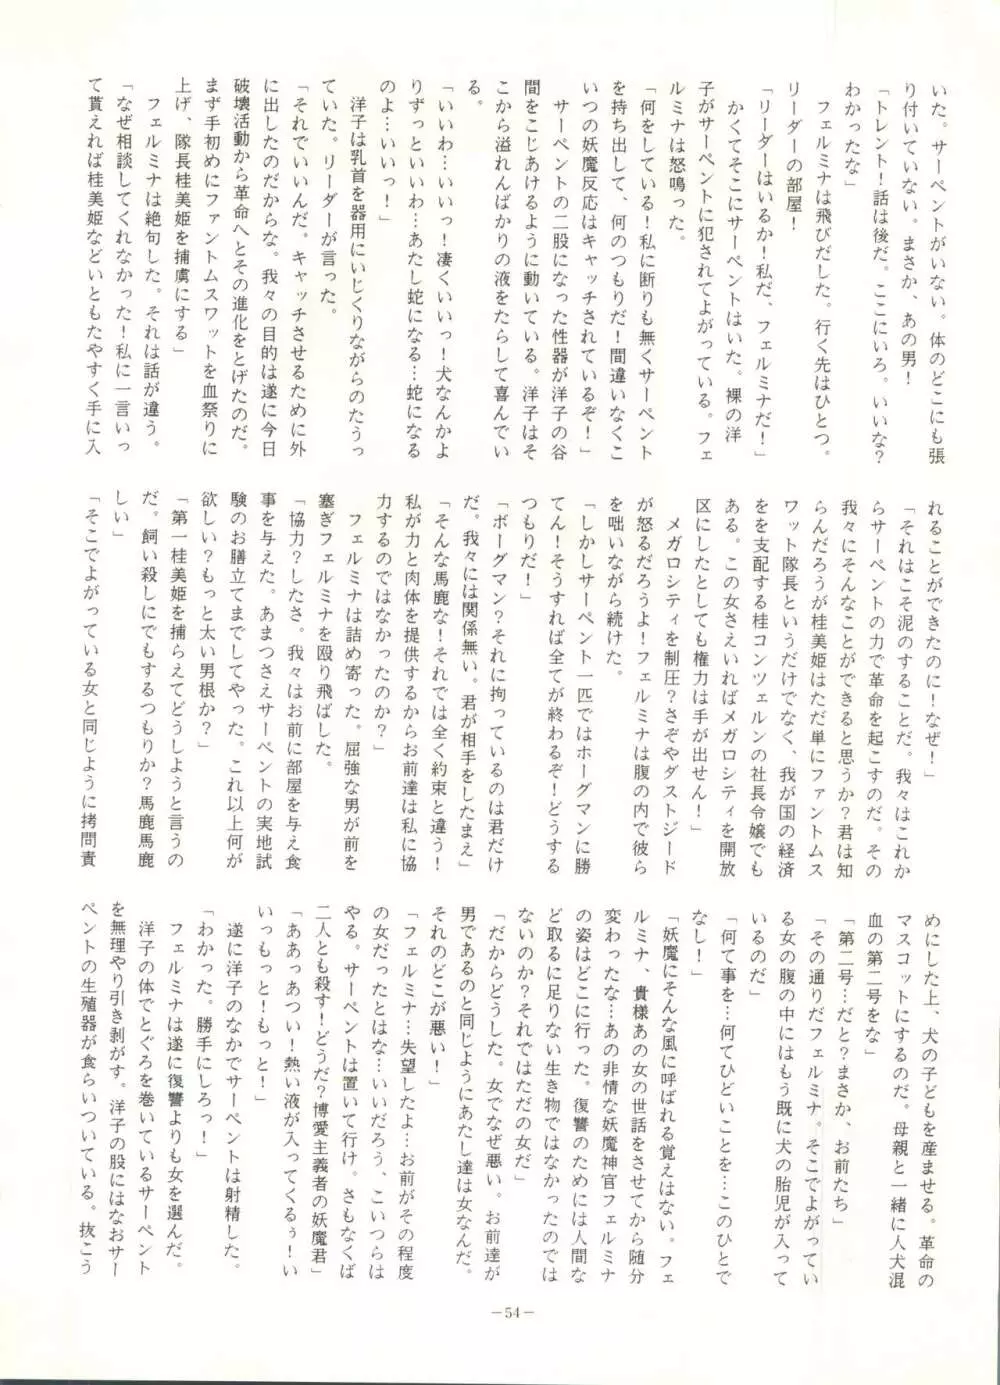 いた。サーペントがいない。体のどこにも張
り付いていない。まさか、あの男！
「トレント！話は後だ。ここにいろ。いいな？
わかったな」
フェルミナは飛びだした。行く先はひとつ。
リーダーの部屋！
「リーダーはいるか！私だ、フェルミナだ！」
かくてそこにサーペントはいた。裸の洋
子がサーペントに犯されてよがっている。フェ
ルミナは怒鳴った。
「何をしている！私に断りも無くサーペント
を持ち出して、何のつもりだ！間違いなくこ
いつの妖魔反応はキャッチされているぞ！」
サーペントの二股になった性器が洋子の谷
間をこじあけるように動いている。洋子はそ
こから溢れんばかりの液をたらして喜んでい
る。
「いいわ…いいっ！凄くいいっ！犬なんかよ
りずっといいわ…あたし蛇になる…蛇になる
のよ…いいっ！」
洋子は乳首を器用にいじくりながらのたうっ
ていた。リーダーが言った。
「それでいいんだ。キャッチさせるために外
に出したのだからな。我々の目的は遂に今日
破壊活動から革命へとその進化をとげたのだ。
まず手初めにファントムスワットを血祭りに
上げ、隊長桂美姫を捕虜にする」
フェルミナは絶句した。それは話が違う。
「なぜ相談してくれなかった！私に一言いっ
て貰えれば桂美姫などいともたやすく手に入
れることができたのに！なぜ！」
「それはこそ泥のすることだ。我々はこれか
らサーペントの力で革命を起こすのだ。その
我々にそんなことができると思うか？君は知
らんだろうが桂美姫はただ単にファントムス
ワット隊長というだけでなく、我が国の経済
をを支配する桂コンツェルンの社長令嬢でも
ある。この女さえいればメガロシティを開放
区にしたとしても権力は手が出せん！」
メガロシティを制圧？さぞやダストジード
が怒るだろうよ！フェルミナは腹の内で彼ら
を咄いながら続けた。
「しかしサーペント一匹ではホーグマンに勝
てん！そうすれば全てが終わるぞ！どうする
つもりだ！」
「ボーグマン？それに拘っているのは君だけ
だ。我々には関係無い。君が相手をしたまえ」
「そんな馬鹿な！それでは全く約束と違う！
私が力と肉体を提供するからお前達は私に協
力するのではなかったのか？」
フェルミナは詰め寄った。屈強な男が前を
塞ぎフェルミナを殴り飛ばした。
「協力？したさ。我々はお前に部屋を与え食
事を与えた。あまつさえサーペントの実地試
験のお膳立てまでしてやった。これ以上何が
欲しい？もっと太い男根か？」
「第一桂美姫を捕らえてどうしようと言うの
だ。飼い殺しにでもするつもりか？馬鹿馬鹿
しい」
「そこでよがっている女と同じように拷問責
めにした上、犬の子どもを産ませる。革命の
マスコットにするのだ。母親と一緒に人犬混
血の第二号をな」
「第二号…だと？まさか、お前たち」
「その通りだフェルミナ。そこでよがってい
る女の腹の中にはもう既に犬の胎児が入って
いるのだ」
「何て事を…何てひどいことを…このひとで
なし！」
「妖魔にそんな風に呼ばれる覚えはない。フェ
ルミナ、貴様あの女の世話をさせてから随分
変わったな…あの非情な妖魔神官フェルミナ
の姿はどこに行った。復讐のためには人間な
ど取るに足りない生き物ではなかったのでは
ないのか？それではただの女だ」
「だからどうした。女でなぜ悪い。お前達が
男であるのと同じようにあたし達は女なんだ。
それのどこが悪い！」
「フェルミナ…失望したよ…お前がその程度
の女だったとはな…いいだろう、こいつらは
やる。サーペントは置いて行け。さもなくば
二人とも殺す！どうだ？博愛主義者の妖魔君」
「ああっあっつい！熱い液が入ってくるぅ！い
いっもっと！もっと！」
遂に洋子のなかでサーペントは射精した。
「わかった。勝手にしろっ！」
フェルミナは遂に復讐よりも女を選んだ。
洋子の体でとぐろを巻いているサーペント
を無理やり引き剥がす。洋子の股にはなおサー
ペントの生殖器が食らいついている。抜こう
－54－